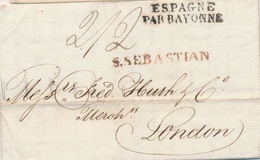 ESPAGNE
PAR BAYONNE
2/2
S. SEBASTIAN
Messrs Fred Huth & Co
Merchts
London